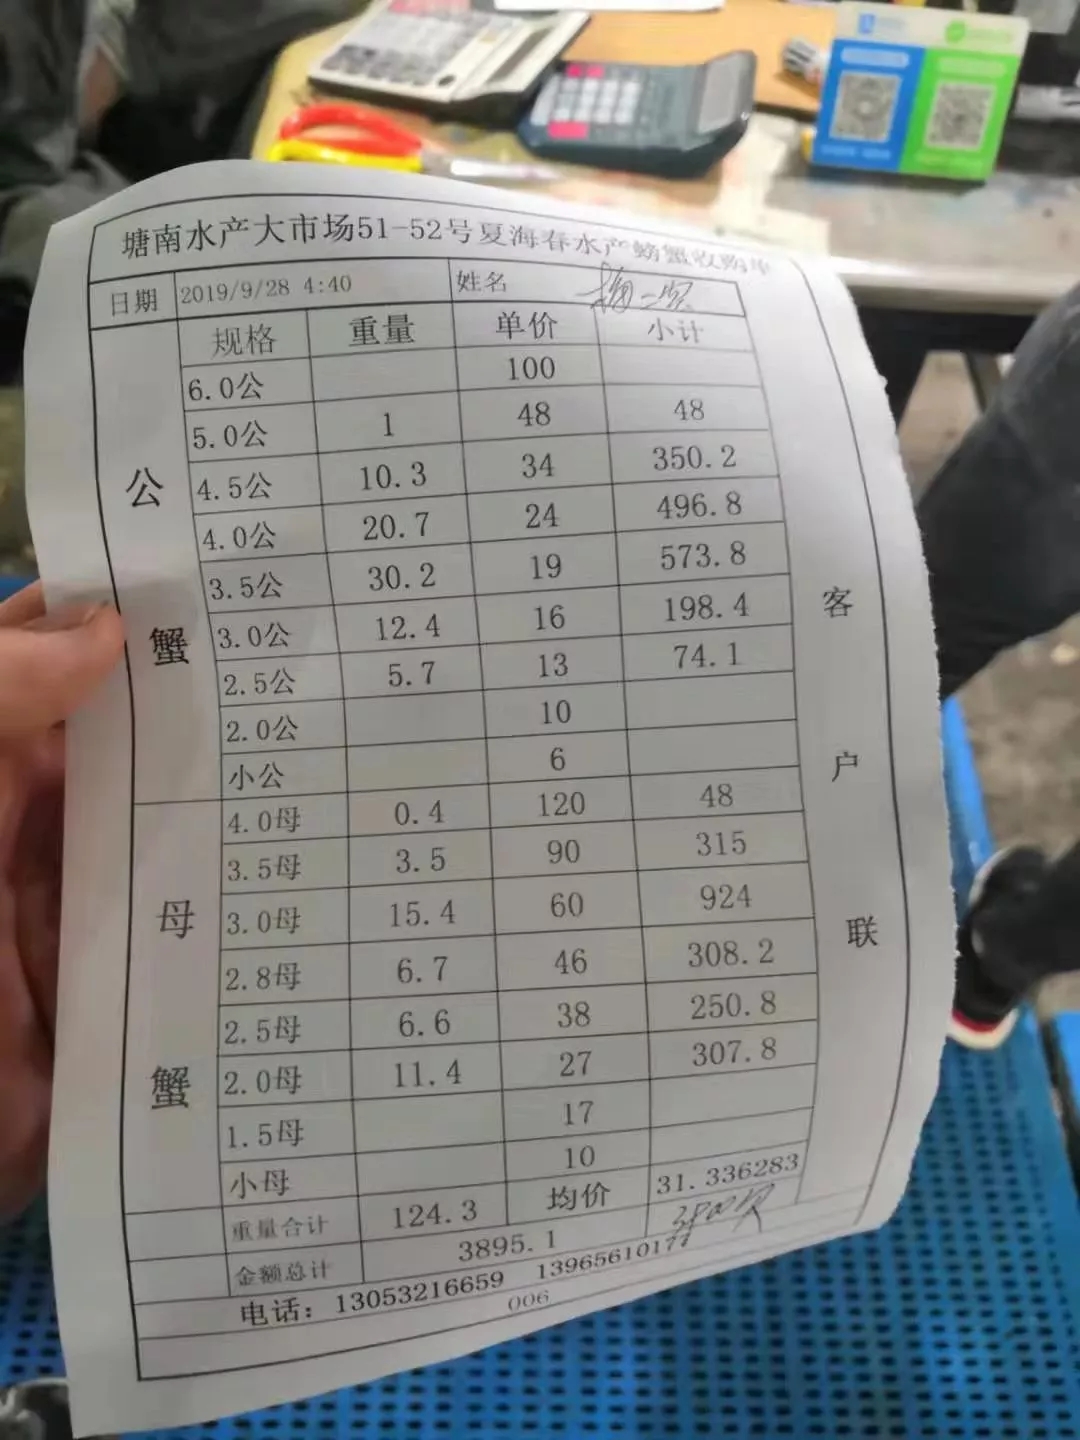 塘南水产大市场51-52号夏海春水产螃蟹收购单
日期 2019/9/28 4:40 姓名
公蟹 规格 重量 单价 小计
6.0公 100
5.0公 1 48 48
4.5公 10.3 34 350.2
4.0公 20.7 24 496.8
3.5公 30.2 19 573.8
3.0公 12.4 16 198.4
2.5公 5.7 13 74.1
2.0公 10
小公 6
母蟹 4.0母 0.4 120 48
3.5母 3.5 90 315
3.0母 15.4 60 924
2.8母 6.7 46 308.2
2.5母 6.6 38 250.8
2.0母 11.4 27 307.8
1.5母 17
小母 10
重量合计 124.3 均价 31.336283
金额总计 3895.1
电话：13053216659 13965610177
006
客户联